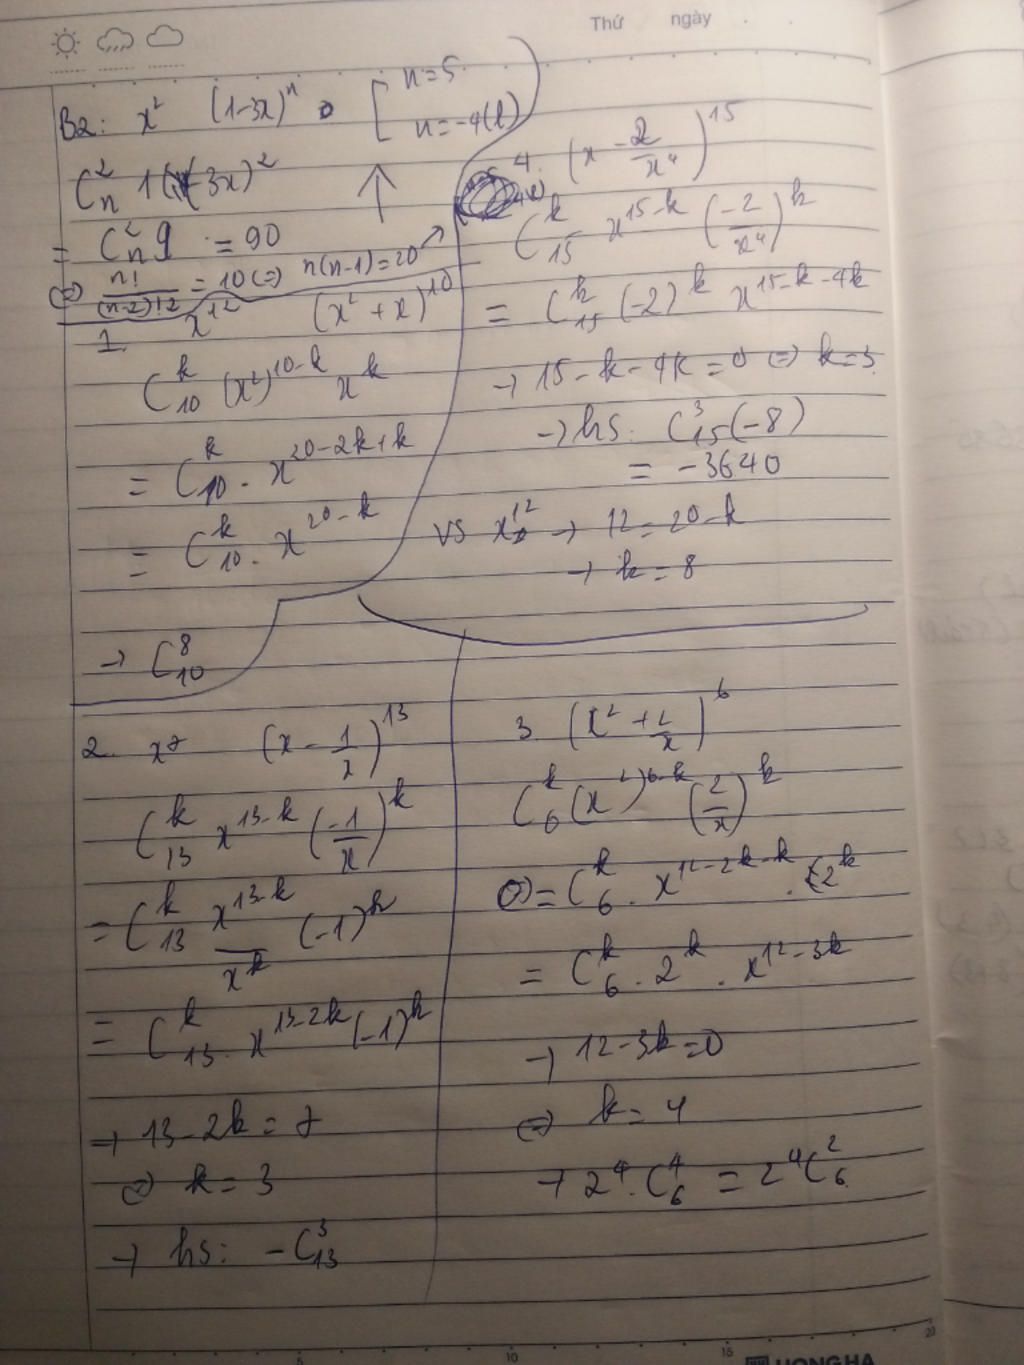 Thứ ngày
B2: x² (1-3x)ⁿ [ n=5
n=-4(l)
Cₙ² 1 (-3x)²
= Cₙ² 9 = 90
(=) n!/((n-2)!2) = 10 (=) n(n-1)=20
1. x¹² (x² + x)¹⁰
C₁₀ᵏ (x²)¹⁰⁻ᵏ xᵏ
= C₁₀ᵏ . x²⁰⁻²ᵏ⁺ᵏ
= C₁₀ᵏ . x²⁰⁻ᵏ vs x¹² → 12 = 20-k
→ k = 8
→ C₁₀⁸
4. (x - 2/x⁴)¹⁵
C₁₅ᵏ x¹⁵⁻ᵏ (-2/x⁴)ᵏ
= C₁₅ᵏ (-2)ᵏ x¹⁵⁻ᵏ⁻⁴ᵏ
→ 15-k-4k=0 (=) k=3
→ hs: C₁₅³(-8)
= -3640
2. x⁷ (x - 1/x)¹³
C₁₃ᵏ x¹³⁻ᵏ (-1/x)ᵏ
= C₁₃ᵏ x¹³⁻ᵏ/xᵏ (-1)ᵏ
= C₁₃ᵏ . x¹³⁻²ᵏ (-1)ᵏ
→ 13-2k = 7
(=) k = 3
→ hs: -C₁₃³
3 (x² + 2/x)⁶
C₆ᵏ (x²)⁶⁻ᵏ (2/x)ᵏ
= C₆ᵏ . x¹²⁻²ᵏ⁻ᵏ . 2ᵏ
= C₆ᵏ . 2ᵏ . x¹²⁻³ᵏ
→ 12-3k=0
(=) k=4
→ 2⁴. C₆⁴ = 2⁴C₆²
5 10 15 20
HONGHA